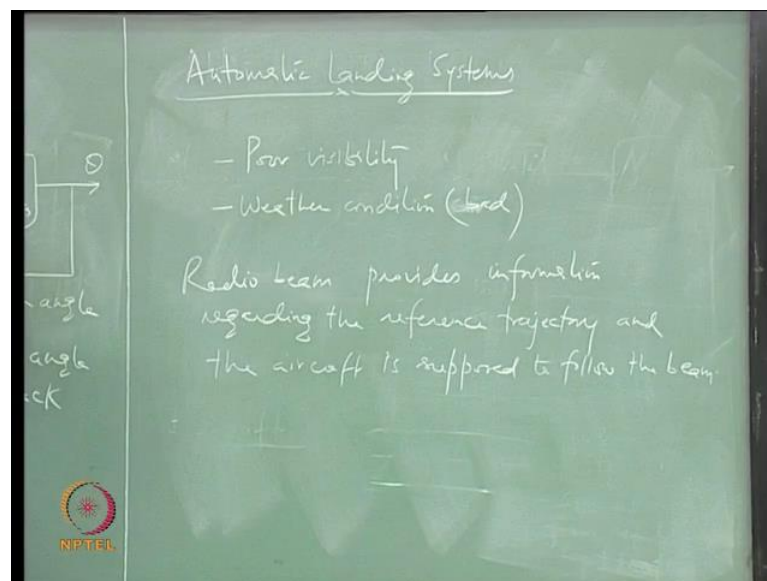 Automatic Landing Systems
- Poor visibility
- Weather condition (bad)
Radio beam provides information
regarding the reference trajectory and
the aircraft is supposed to follow the beam.
θ
angle
angle
ack
NPTEL